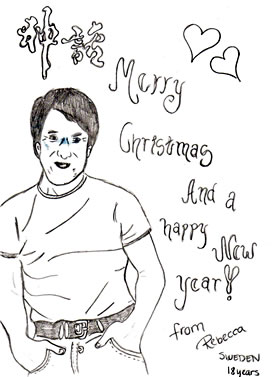 神話
Merry
Christmas
And a
happy
New
year!
from
Rebecca
SWEDEN
18 years